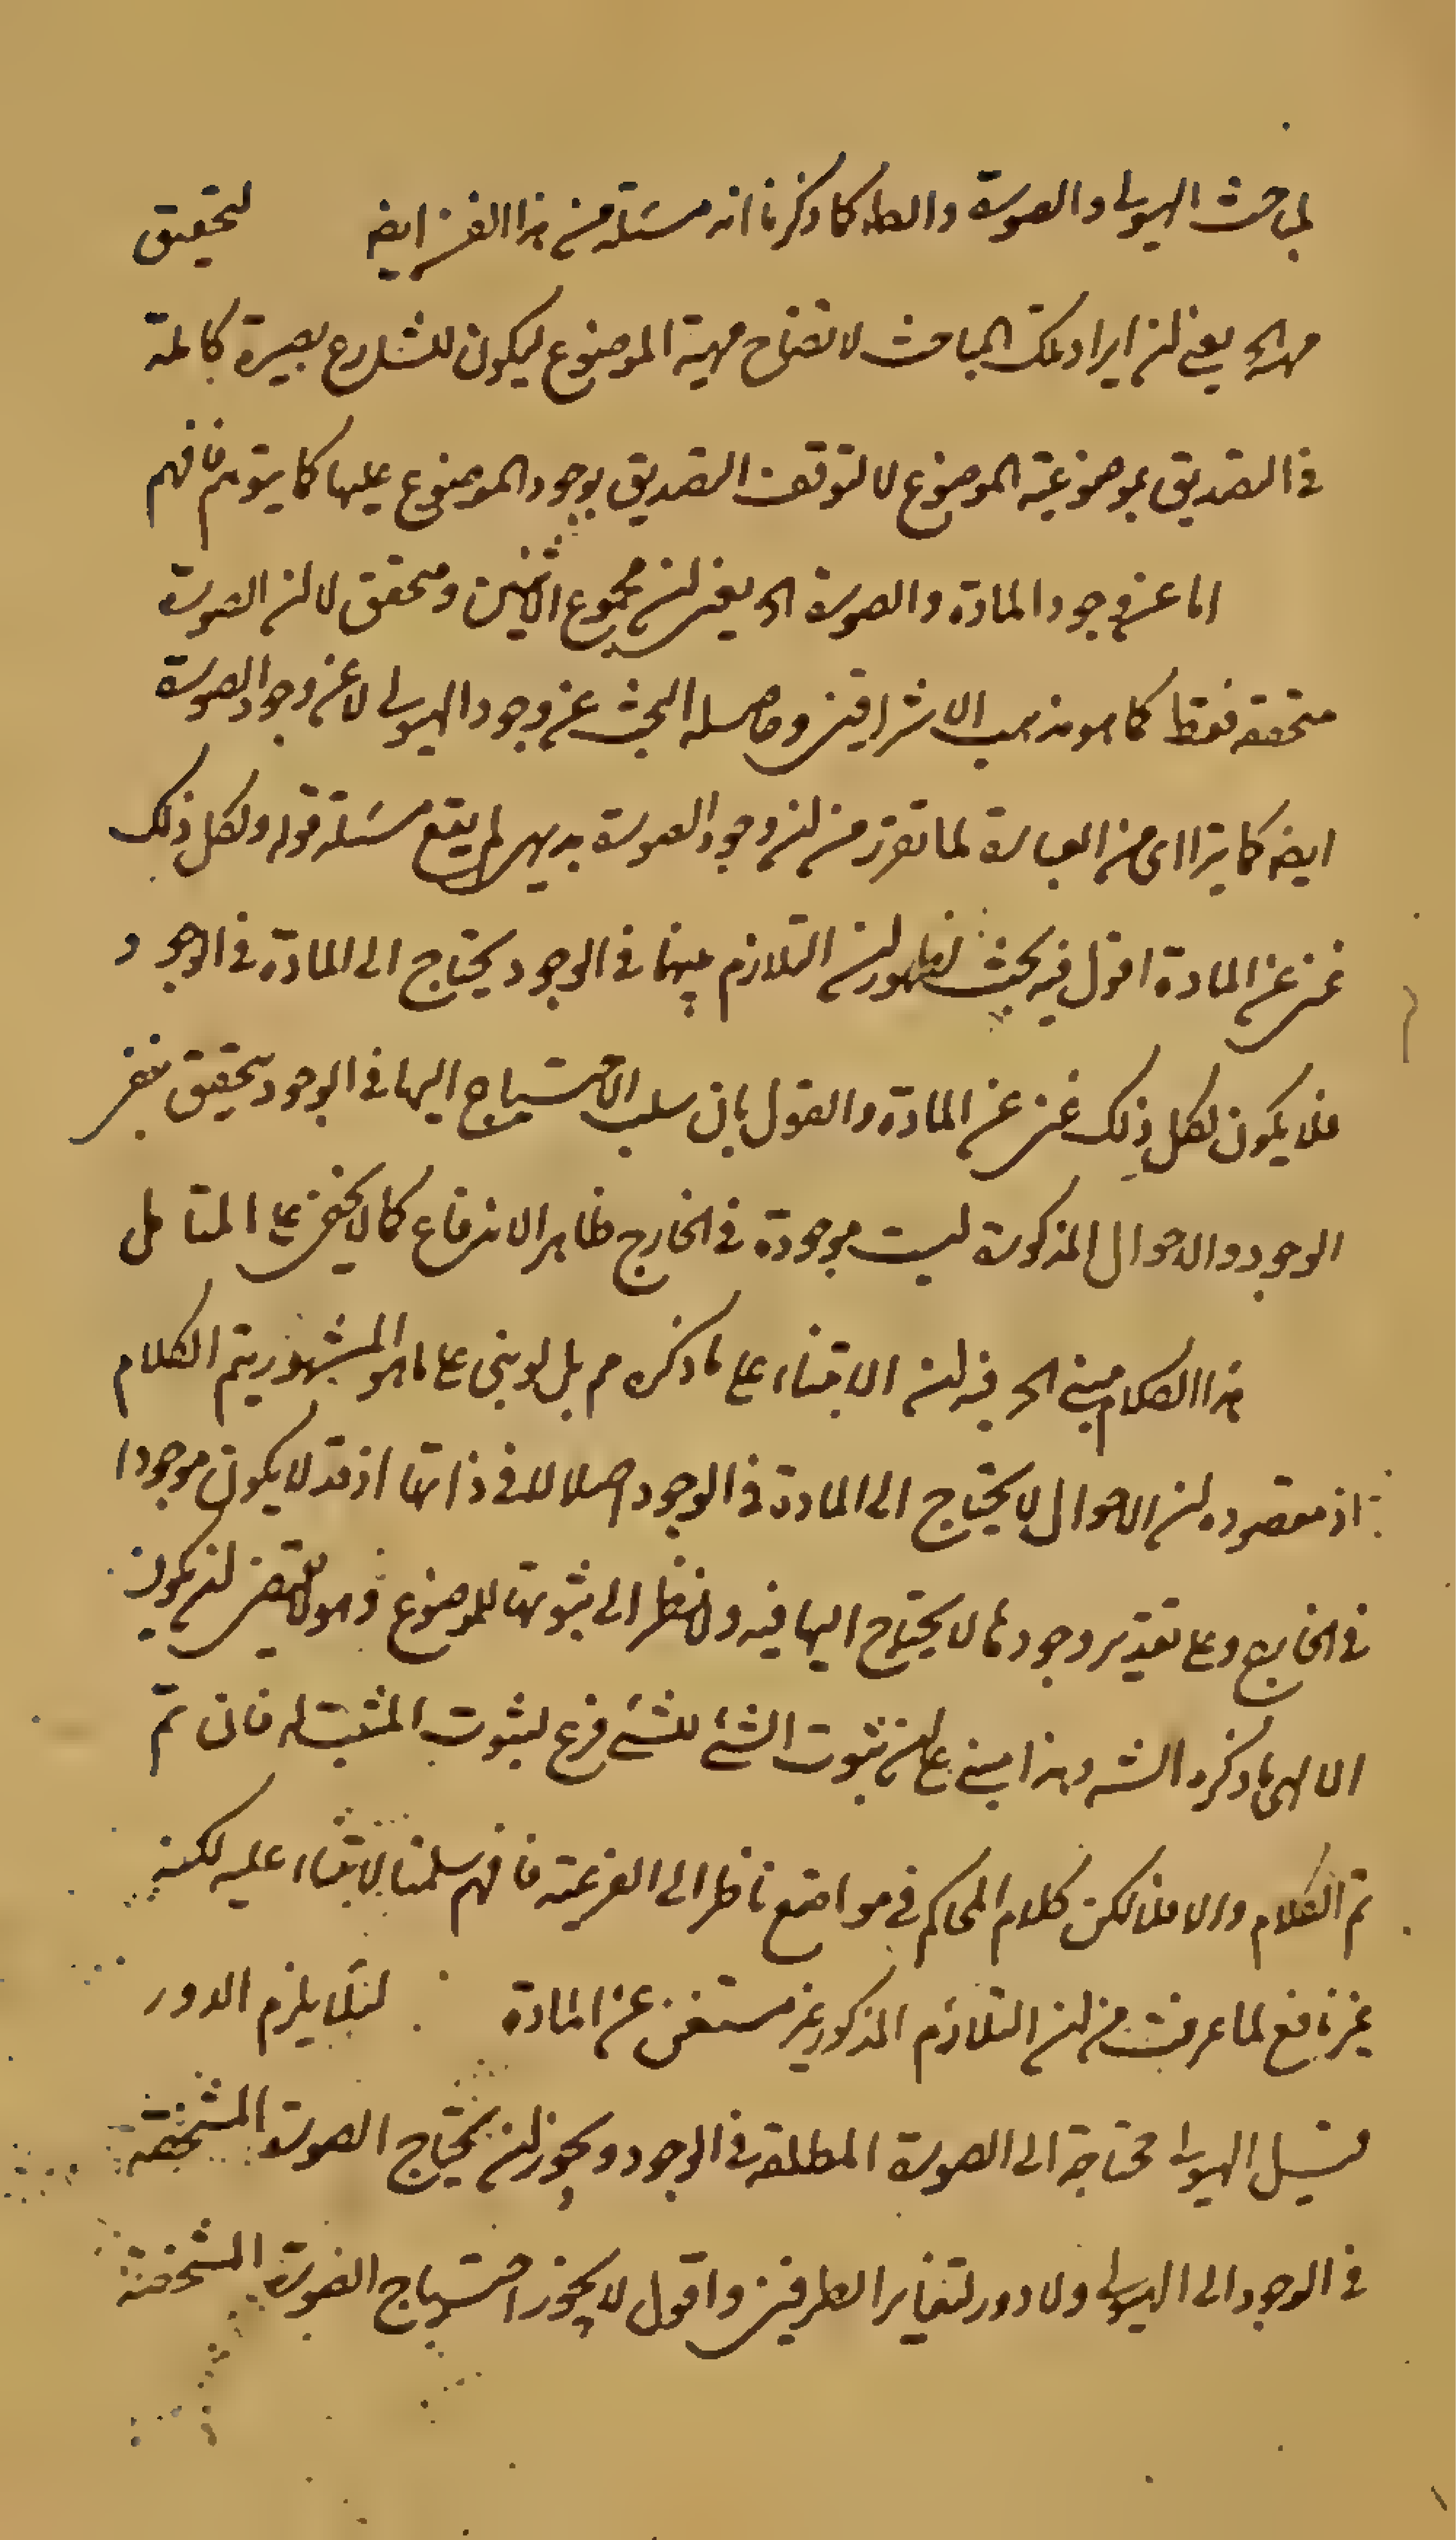 لمباحث الهيولى والصورة والحال كما ذكرنا انه مسئلة من هذا الفن ايضا لتحقيق
مهية الخ يعنى ان ايراد تلك المباحث لاتضاح مهية الموضوع ليكون للشارع بصيرة كاملة
فى التصديق بموضوعية الموضوع لا لتوقف التصديق بوجود الموضوع عليها كما يتوهم فافهم
اما عن وجود المادة والصورة الخ يعنى ان مجموع الاثنين متحقق لا ان الصورة
متحققه فقط كما هو مذهب الاشراقين وحاصله البحث عن وجود الهيولى لا عن وجود الصورة
ايضه كما يترااى من العبارة لما تقرر من ان وجود الصورة بديهى لم يقع مسئلة قوله ولكل ذلك
غنى عن المادة اقول فيه بحث لظهور ان التلازم بينهما فى الوجود يحتاج الى المادة فى الوجود
فلا يكون لكل ذلك غنى عن المادة والقول بان سلب الاحتياج اليها فى الوجود يتحقق بنفى
الوجود والاحوال المذكورة ليست موجودة فى الخارج ظاهر الاندفاع كما لا يخفى على المتامل
هذا الكلام مبنى الخ فيه ان الابتناء على ما ذكره مم بل لو بنى على ما هو المشهور يتم الكلام
اذ مقصوده ان الاحوال لا يحتاج الى المادة فى الوجود اصلا لا فى ذاتها اذ قد لا يكون موجودا
فى الخارج وعلى تقدير وجودها لا يحتاج اليها فيه ولا نظرا الى ثبوتها للموضوع وهو لا يقتضى ان يكون
الالهى ما ذكره الشه وهذا مبنى على ان ثبوت الشئ للشئ فرع لثبوت المثبت له فان تم
تم الكلام والا فلا لكن كلام المحاكم فى مواضع ناظر الى الفرعية فافهم سلمنا الابتناء عليه لكنه
غير نافع لما عرفت من ان التلازم المذكور غير مستغن عن المادة لئلا يلزم الدور
قيل الهيولى محتاجة الى الصورة المطلقه فى الوجود ويجوز ان يحتاج الصورة المشخصة
فى الوجود الى الهيولى ولا دور لتغاير الطرفين واقول لا يجوز احتياج الصورة المشخصة